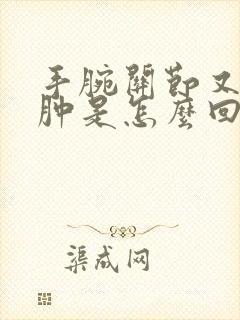 手腕關節又
肿是怎麼回
渠成网